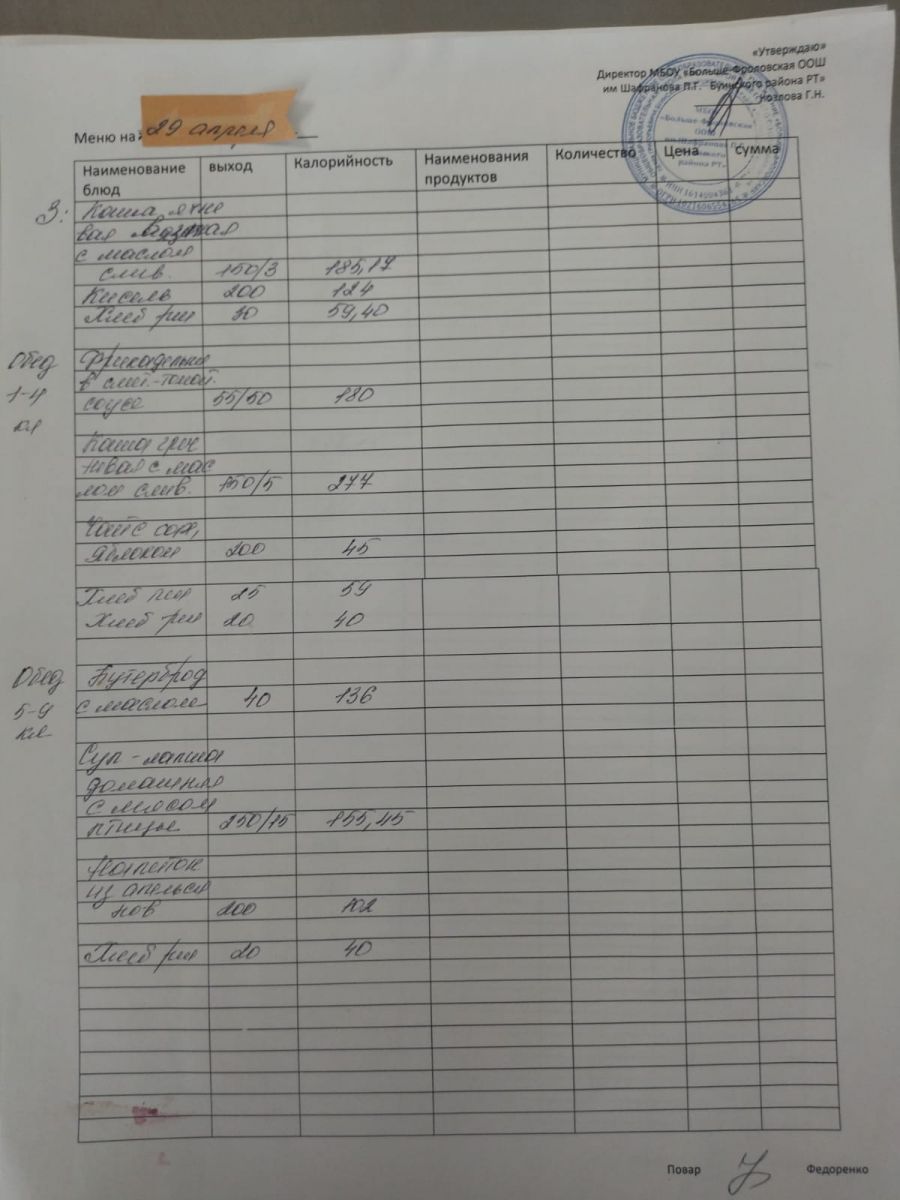 «Утверждаю»
Директор МБОУ «Больше-Фроловская ООШ
им Шафранова П.Г. Буинского района РТ»
Козлова Г.Н.
Меню на 29 апреля
Наименование блюд выход Калорийность Наименования продуктов Количество Цена сумма
З: Каша ячне
вая вязкая
с маслом
слив. 150/3 185,17
Кисель 200 124
Хлеб рж 30 59,40
Обед Фрикадельки
в смет.-томат.
1-4 соусе 55/50 180
кл
Каша греч
невая с мас
лом слив. 150/5 277
Чай с сах,
яблоком 200 45
Хлеб пш 25 59
Хлеб рж 20 40
Обед Бутерброд
5-9 с маслом 40 136
кл
Суп-лапша
домашняя
с мясом
птицы 250/15 155,45
Напиток
из апельси
нов 200 102
Хлеб рж 20 40
Повар Федоренко